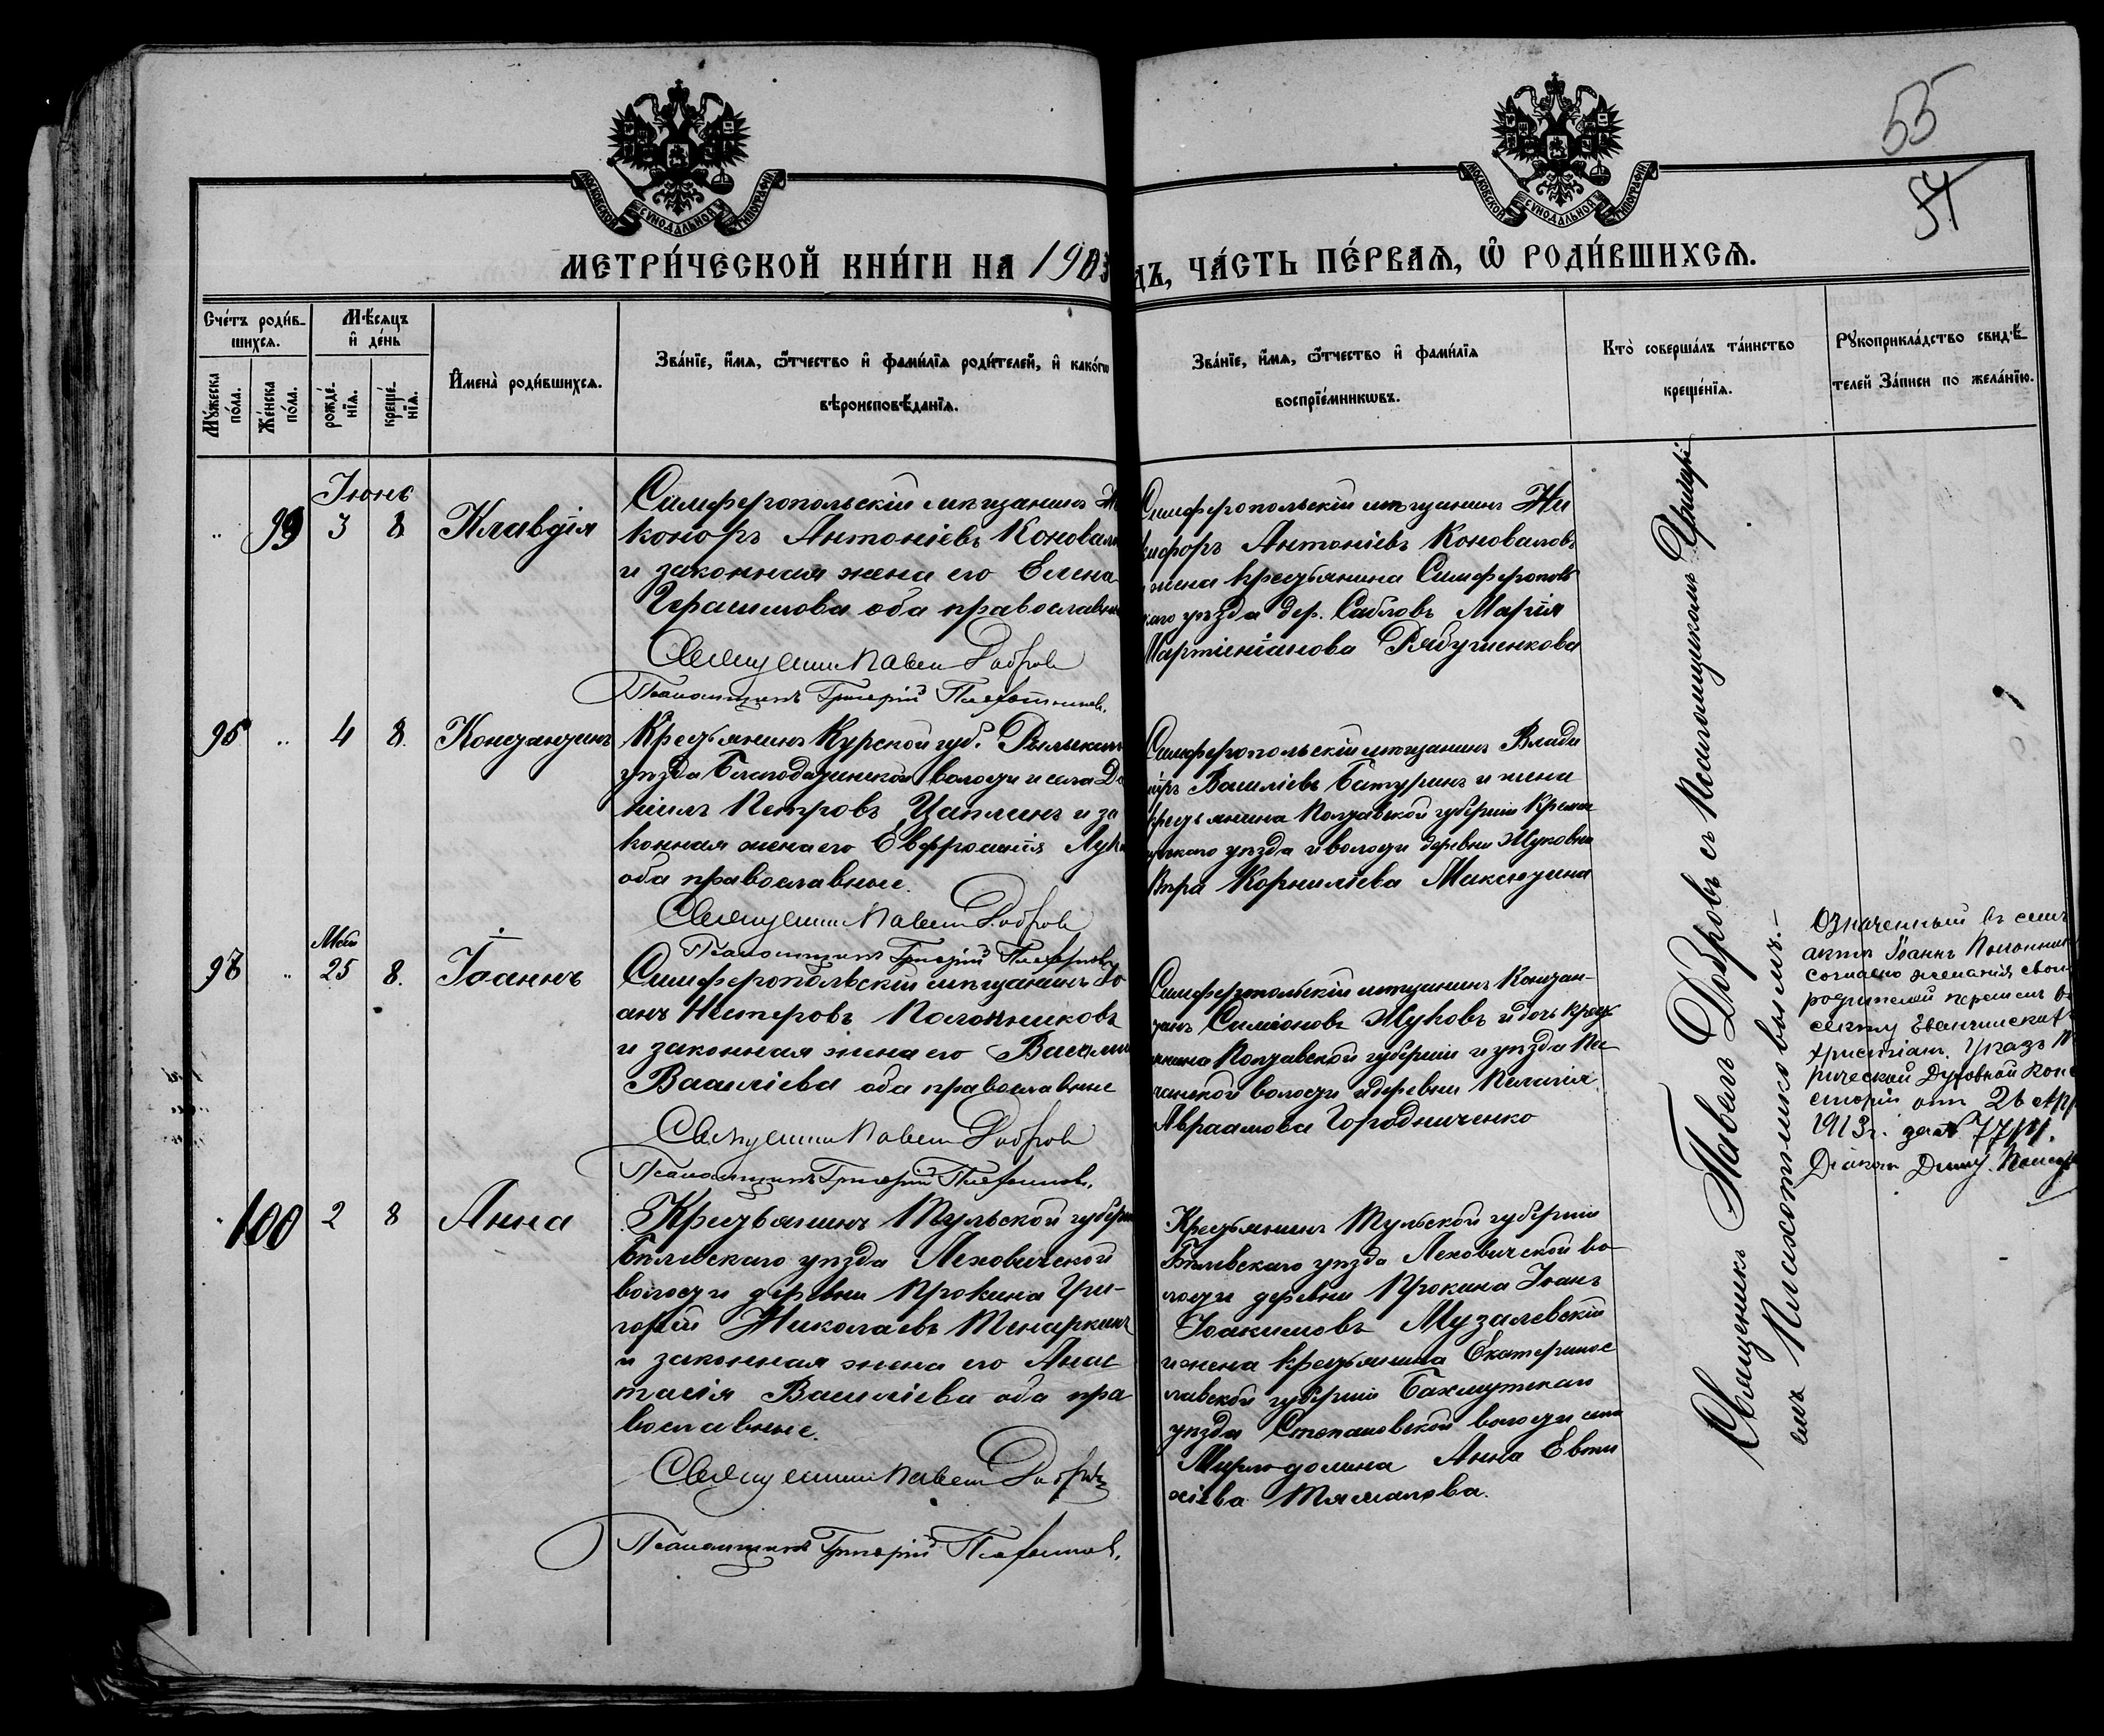 55
54
МОСКОВСКОЙ СѴНОДАЛЬНОЙ ТИПОГРАФІИ
МОСКОВСКОЙ СѴНОДАЛЬНОЙ ТИПОГРАФІИ
МЕТРИ́ЧЕСКОЙ КНИ́ГИ НА 1903
ДЪ, ЧА́СТЬ ПЕ́РВАѦ, Ѡ҆ РОДИ́ВШИХСѦ.
Сче́тъ роди́в-
шихсѧ.
Мꙋ́жеска по́ла.
Же́нска по́ла.
Мѣ́сѧцъ
и҆ де́нь
рожде́-нїѧ.
креще́-нїѧ.
И҆мена̀ роди́вшихсѧ.
Зва́нїе, и҆́мѧ, ѻ҆́тчество и҆ фами́лїѧ роди́телей, и҆ како́гѡ
вѣроисповѣ́данїѧ.
Зва́нїе, и҆́мѧ, ѻ҆́тчество и҆ фами́лїѧ
воспрїе́мникѡвъ.
Кто̀ соверша́лъ та́инство
креще́нїѧ.
Рꙋкоприкла́дство свидѣ́-
телей За́писи по жела́нїю.
Іюнь
99 3 8 Клавдія
Симферопольскій мѣщанинъ Ни
коноръ Антоніевъ Коновал
и законная жена его Елена
Герасимова оба православн
Священникъ Павелъ Добровъ
Псаломщикъ Григорій Плохотниковъ.
Симферопольскій мѣщанинъ Ни
кифоръ Антоніевъ Коноваловъ
жена крестьянина Симферополь
скаго уѣзда дер. Сабловъ Марія
Мартиніанова Рябушенкова
4 8. Константинъ
Крестьянинъ Курской губ. Рыльскаго
уѣзда Благодатенской волости и села Да
ніилъ Петровъ Цаплинъ и за
конная жена его Евфросинія Лук
оба православные.
Священникъ Павелъ Добровъ
Псаломщикъ Григорій Плохотниковъ
Симферопольскій мѣщанинъ Влади
міръ Василіевъ Батуринъ и жена
крестьянина Полтавской губерніи Кремен
чугскаго уѣзда и волости деревни Жуковки
Вѣра Корниліева Максюзина
Май
25 8. Іоаннъ
Симферопольскій мѣщанинъ Іо
анъ Нестеровъ Полонниковъ
и законная жена его
Василіева оба православные
Священникъ Павелъ Добровъ
Псаломщикъ Григорій Плохотниковъ.
Симферопольскій мѣщанинъ Констан-
тинъ Симеоновъ Жуковъ и дочь кресть
янина Полтавской губерніи и уѣзда
волости деревни Пелагія
Авраамова Городниченко
Означенный въ семъ
актѣ Іоаннъ Полонник
согласно желанія свои
родителей перешелъ въ
секту Евангельских
христіан. Указъ
рической Духовной Конс
сторіи отъ 26 Апр
1913 г. за №
Діаконъ
100 2 8 Анна
Крестьянинъ Тульской губерн
Бѣлевскаго уѣзда Леховичской
волости деревни Прокина Гри-
горій Николаевъ Тенаркинъ
и законная жена его Анас
тасія Василіева оба пра
вославные.
Священникъ Павелъ Добровъ
Псаломщикъ Григорій Плохотниковъ.
Крестьянинъ Тульской губерніи
Бѣлевскаго уѣзда Леховичской во-
лости деревни Прокина Іоанъ
Іоакимовъ Музалевскій
и жена крестьянина Екатеринос
лавской губерніи Бахмутскаго
уѣзда Степановской волости села
Анна Евти
хіева Тямалова.
Священникъ Павелъ Добровъ съ Псаломщикомъ Григорі-
емъ Плохотниковымъ.–